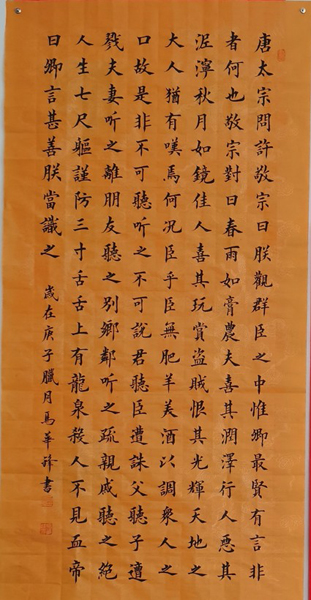 唐太宗問許敬宗曰朕觀群臣之中惟卿最賢有言非
者何也敬宗對曰春雨如膏農夫喜其潤澤行人惡其
泥濘秋月如鏡佳人喜其玩賞盜賊恨其光輝天地之
大人猶有嘆焉何况臣乎臣無肥羊美酒以調眾人之
口故是非不可聽听之不可說君聽臣遭誅父聽子遭
戮夫妻听之離朋友聽之别鄉鄰听之疏親戚聽之絕
人生七尺軀謹防三寸舌舌上有龍泉殺人不見血帝
曰卿言甚善朕當識之
歲在庚子臘月馬華 書